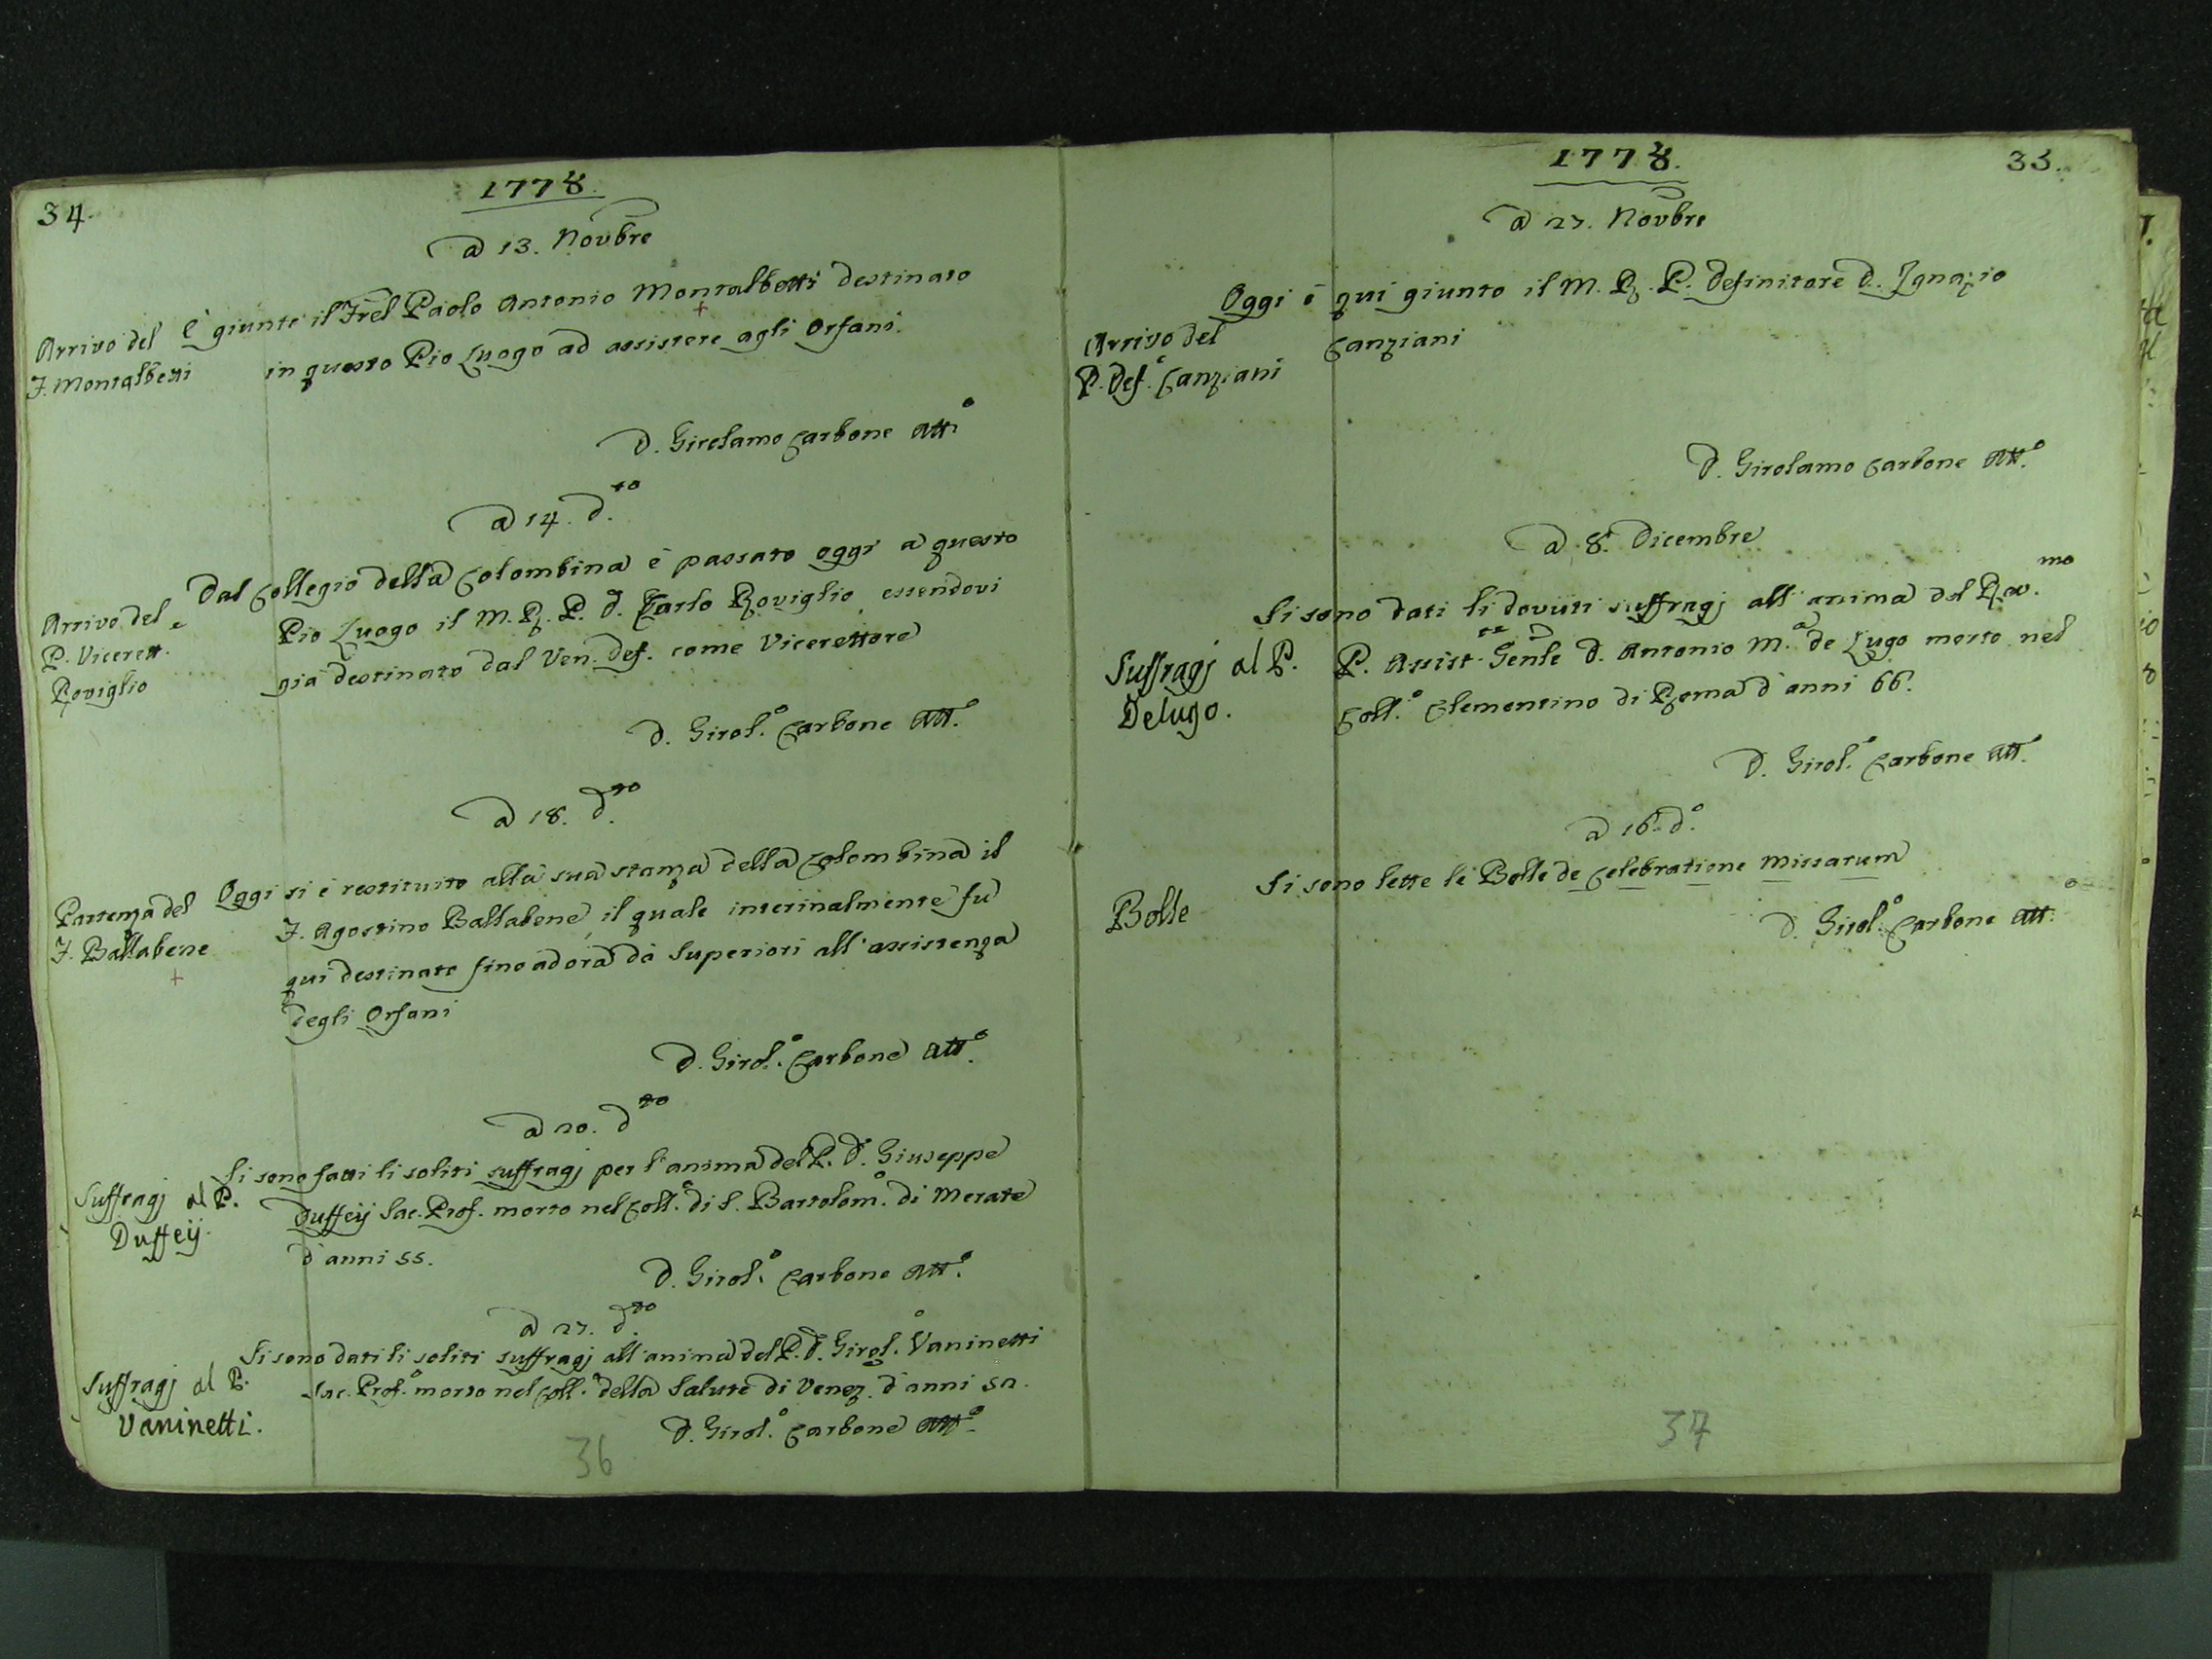 34.
1778.
a 13. Novbre
Arrivo del
F. Montalbetti
È giunto il Frel Paolo Antonio Montalbetti destinato
in questo Pio Luogo ad assistere agli Orfani.
D. Girolamo Carbone Att.º
a 14. d.to
Arrivo del
P. Vicerett.e
Roviglio
Dal Collegio della Colombina è passato oggi a questo
Pio Luogo il M. R. P. D. Carlo Roviglio, essendovi
già destinato dal Ven. Def. come Vicerettore
D. Girol.º Carbone Att.º
a 18. d.to
Partenza del
F. Ballabene
Oggi si è restituito alla sua stanza della Colombina il
F. Agostino Ballabene, il quale interinalmente fu
qui destinato fino ad ora da Superiori all'assistenza
degli Orfani
D. Girol.º Carbone Att.º
a 20. d.to
Suffragj al P.
Duffeij.
Si sono fatti li soliti suffragj per l'anima del P. D. Giuseppe
Duffeij Sac. Prof. morto nel Coll.º di S. Bartolom.º di Merate
d'anni 55.
D. Girol.º Carbone Att.º
a 27. d.to
Suffragj al P.
Vaninetti.
Si sono dati li soliti suffragj all'anima del P. D. Girol.º Vaninetti
Sac. Prof.º morto nel Coll.º della Salute di Venez. d'anni 52.
D. Girol.º Carbone Att.º
36
1778.
35.
a 27. Novbre
Arrivo del
P. Def.º Canziani
Oggi è qui giunto il M. R. P. Definitore D. Ignazio
Canziani
D. Girolamo Carbone Att.º
a 8. Dicembre
Suffragj al P.
Delugo.
Si sono dati li dovuti suffragj all'anima del Rev.mo
P. Assist.te Genle D. Antonio M.a de Lugo morto nel
Coll.º Clementino di Roma d'anni 66.
D. Girol.º Carbone Att.º
a 16. d.º
Bolle
Si sono lette le Bolle de Celebratione Missarum
D. Girol.º Carbone Att.º
37